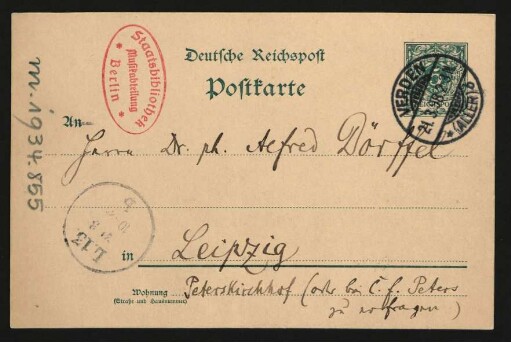 Deutsche Reichspost
Postkarte
Staatsbibliothek
Musikabteilung
* Berlin *
m. 1934.855
VERDEN
21 3
* (ALLER) *
An
Herrn Dr. ph. Alfred Dörffel
L.13
in Leipzig
Wohnung Peterskirchhof (oder bei C. f. Peters
(Straße und Hausnummer)
zu erfragen)